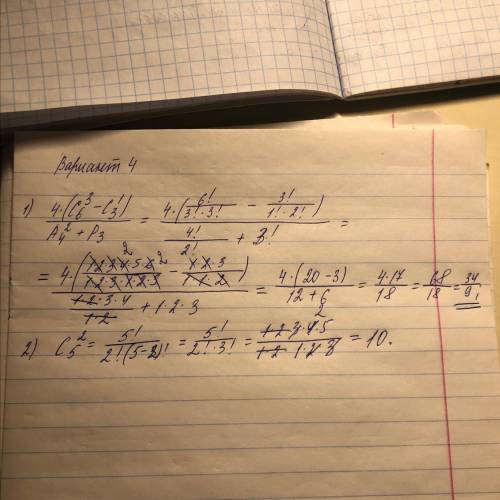 Вариант 4
1) 4·(C₆³ − C₃¹) / (A₄² + P₃) = 4·(6!/(3!·3!) − 3!/(1!·2!)) / (4!/2! + 3!) =
= 4·(1·2·3·4·5·6/(1·2·3·1·2·3) − 1·2·3/(1·1·2)) / (1·2·3·4/(1·2) + 1·2·3) = 4·(20−3)/(12+6) = 4·17/18 = 68/18 = 34/9
2) C₅² = 5!/(2!(5−2)!) = 5!/(2!·3!) = 1·2·3·4·5/(1·2·1·2·3) = 10.